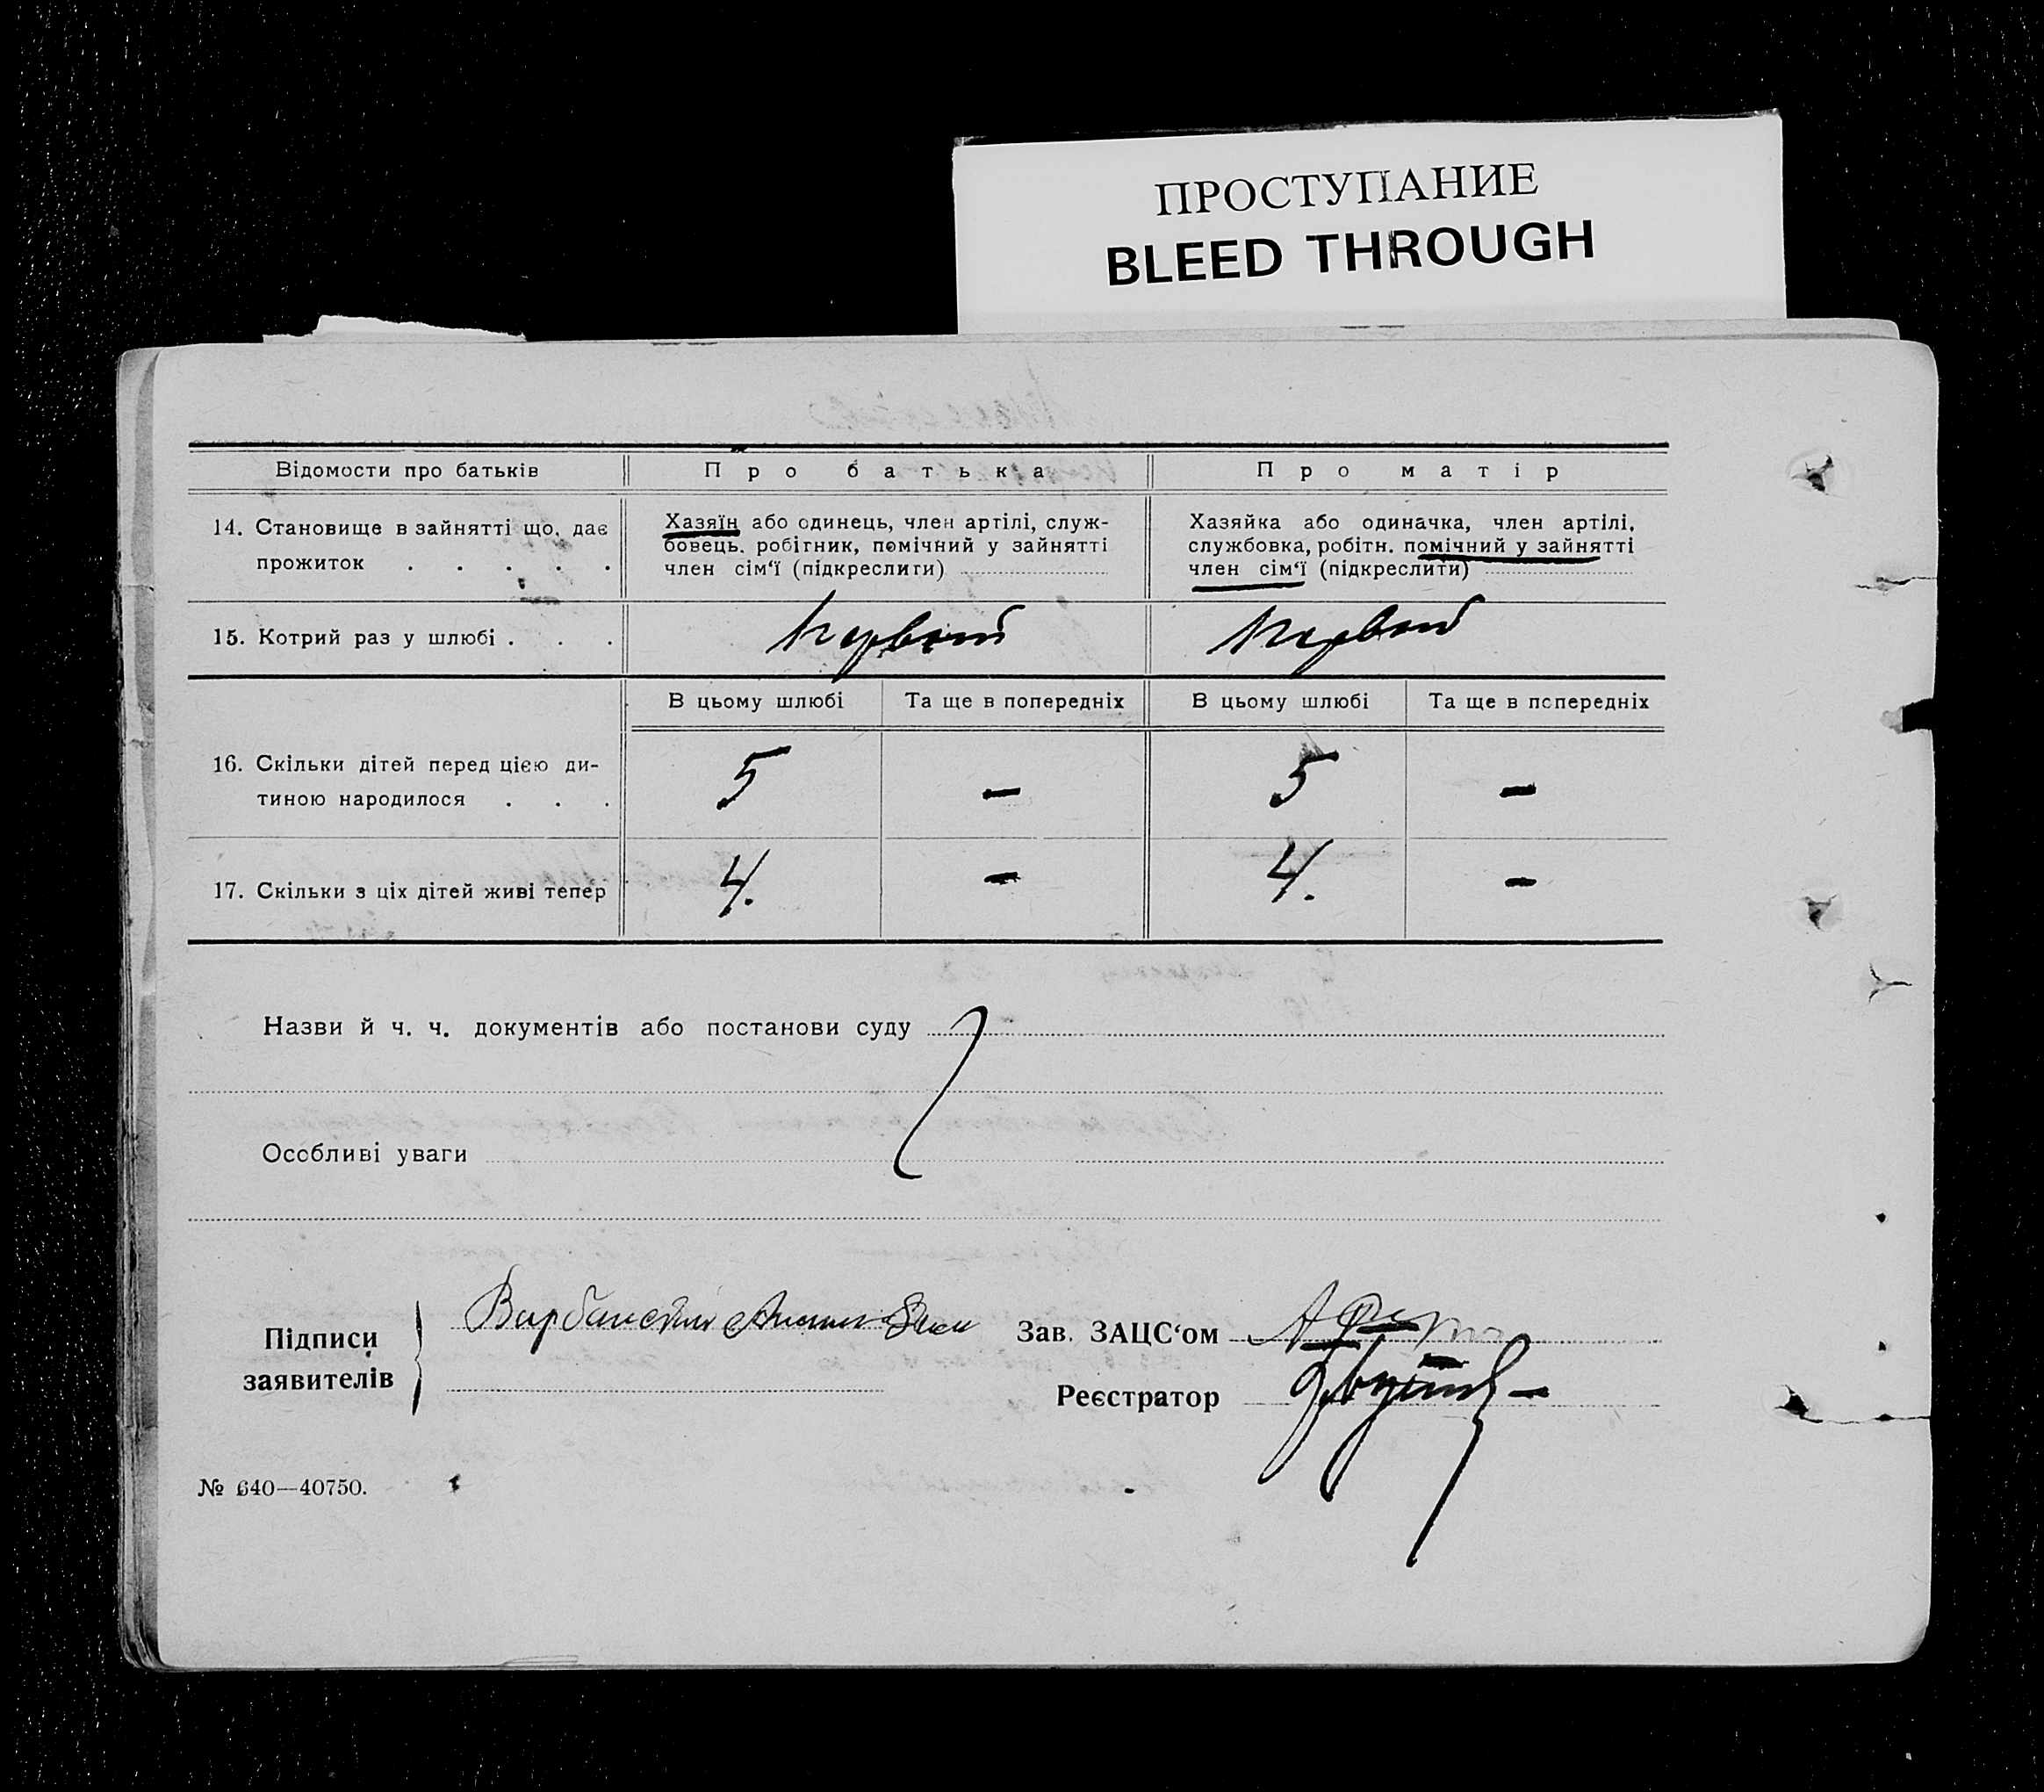 ПРОСТУПАНИЕ
BLEED THROUGH
Відомости про батьків
Про батька
Про матір
14. Становище в зайнятті що, дає
прожиток . . . . .
Хазяїн або одинець, член артілі, служ-
бовець. робітник, помічний у зайнятті
член сім‘ї (підкреслити)
Хазяйка або одиначка, член артілі,
службовка, робітн. помічний у зайнятті
член сім‘ї (підкреслити)
15. Котрий раз у шлюбі . . .
первый
первый
В цьому шлюбі
Та ще в попередніх
В цьому шлюбі
Та ще в попередніх
16. Скільки дітей перед цією ди-
тиною народилося . . .
5
–
5
–
17. Скільки з ціх дітей живі тепер
4.
–
4.
–
Назви й ч. ч. документів або постанови суду
Особливі уваги
Підписи
заявителів
Зав. ЗАЦС‘ом
Реєстратор
№ 640—40750.